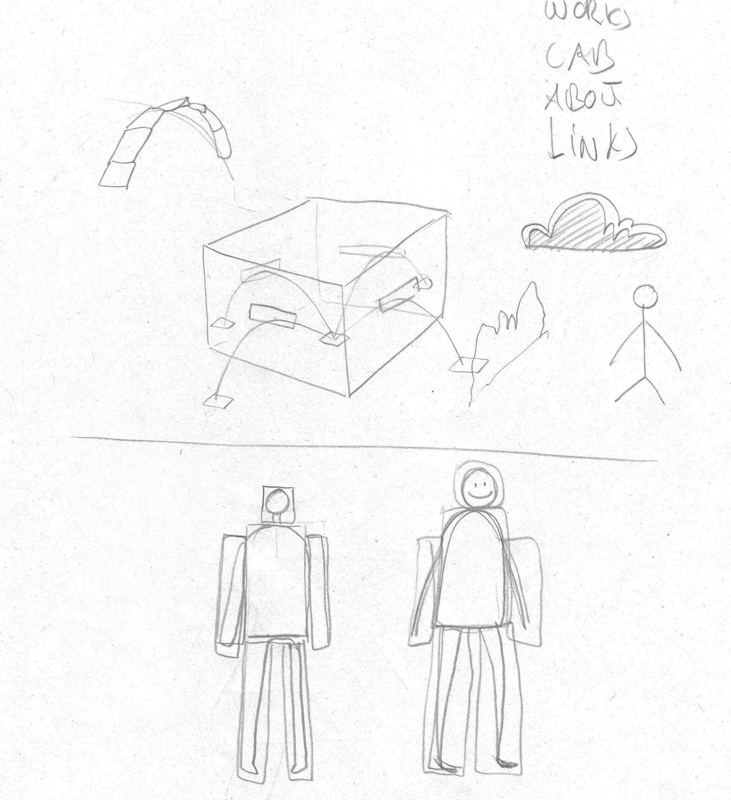 WORKS
CAB
ABOU
LINKS